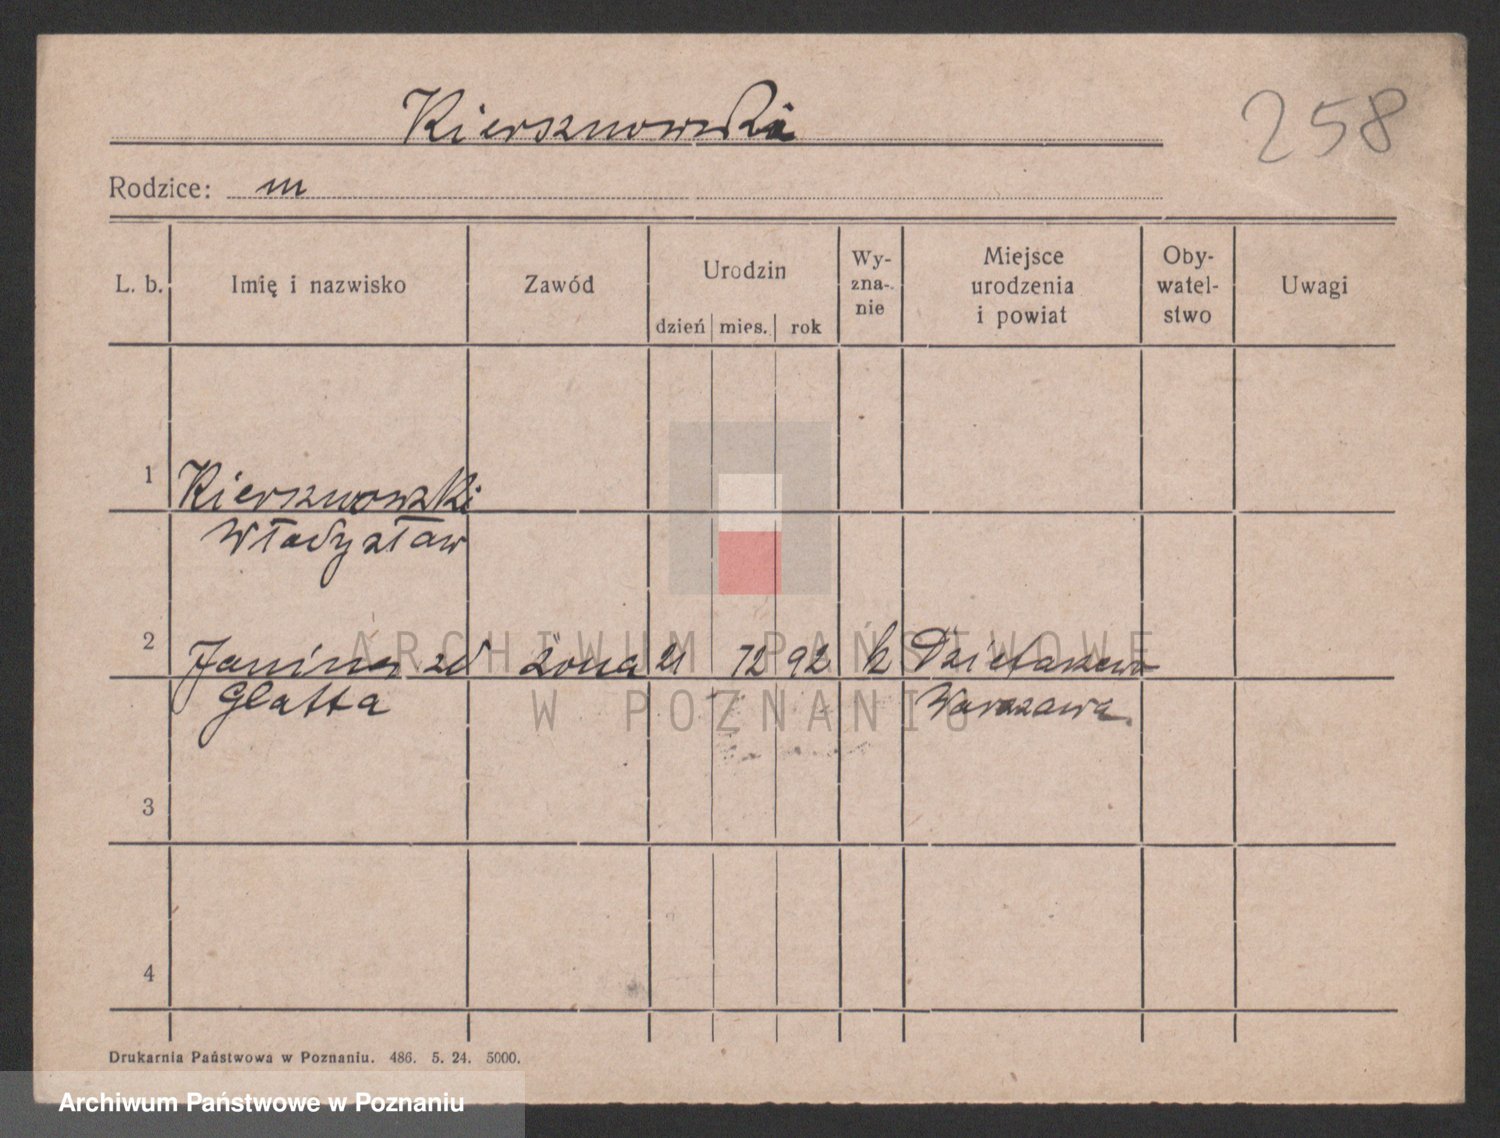 Kiersznowski
258
Rodzice: m
L. b. Imię i nazwisko Zawód Urodzin dzień mies. rok Wy-zna-nie Miejsce urodzenia i powiat Oby-watel-stwo Uwagi
1 Kiersznowski
Władysław
2 Janina zd żona 21 12 92 k
Glatta Warszawa
3
4
ARCHIWUM PAŃSTWOWE
W POZNANIU
Drukarnia Państwowa w Poznaniu. 486. 5. 24. 5000.
Archiwum Państwowe w Poznaniu